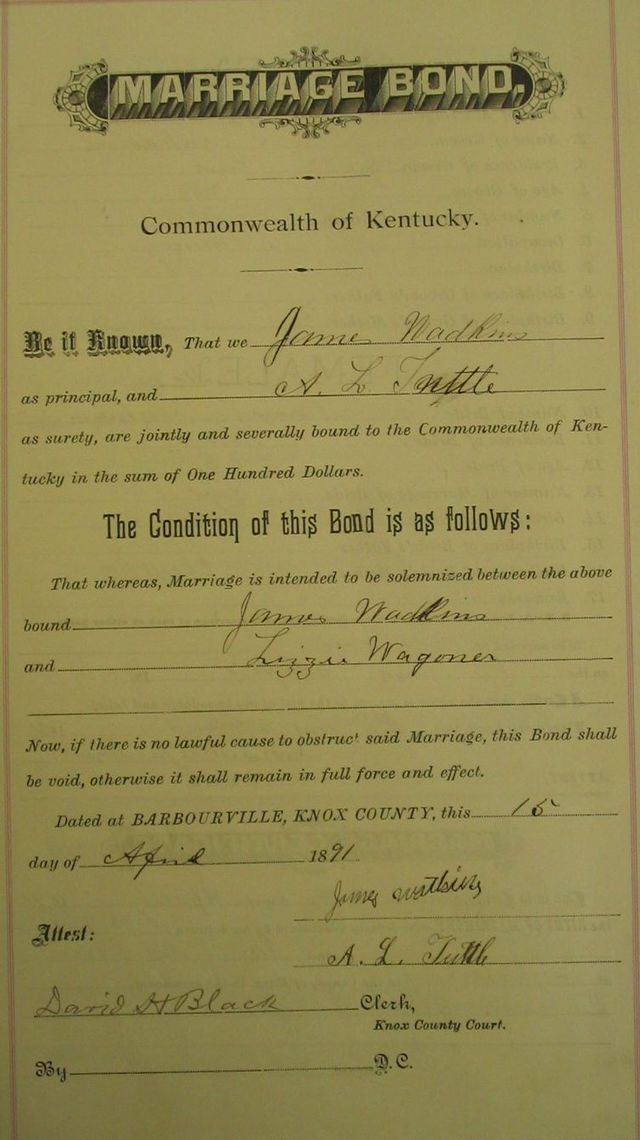 MARRIAGE BOND,
Commonwealth of Kentucky.
Be it Known, That we James Wadkins
as principal, and A. L Tuttle
as surety, are jointly and severally bound to the Commonwealth of Ken-
tucky in the sum of One Hundred Dollars.
The Condition of this Bond is as follows:
That whereas, Marriage is intended to be solemnized between the above
bound James Wadkins
and Lizzie Wagoner
Now, if there is no lawful cause to obstruct said Marriage, this Bond shall
be void, otherwise it shall remain in full force and effect.
Dated at BARBOURVILLE, KNOX COUNTY, this 15
day of April 1891
James Watkins
Attest:
A. L. Tuttle
David H Black Clerk,
Knox County Court.
By D.C.